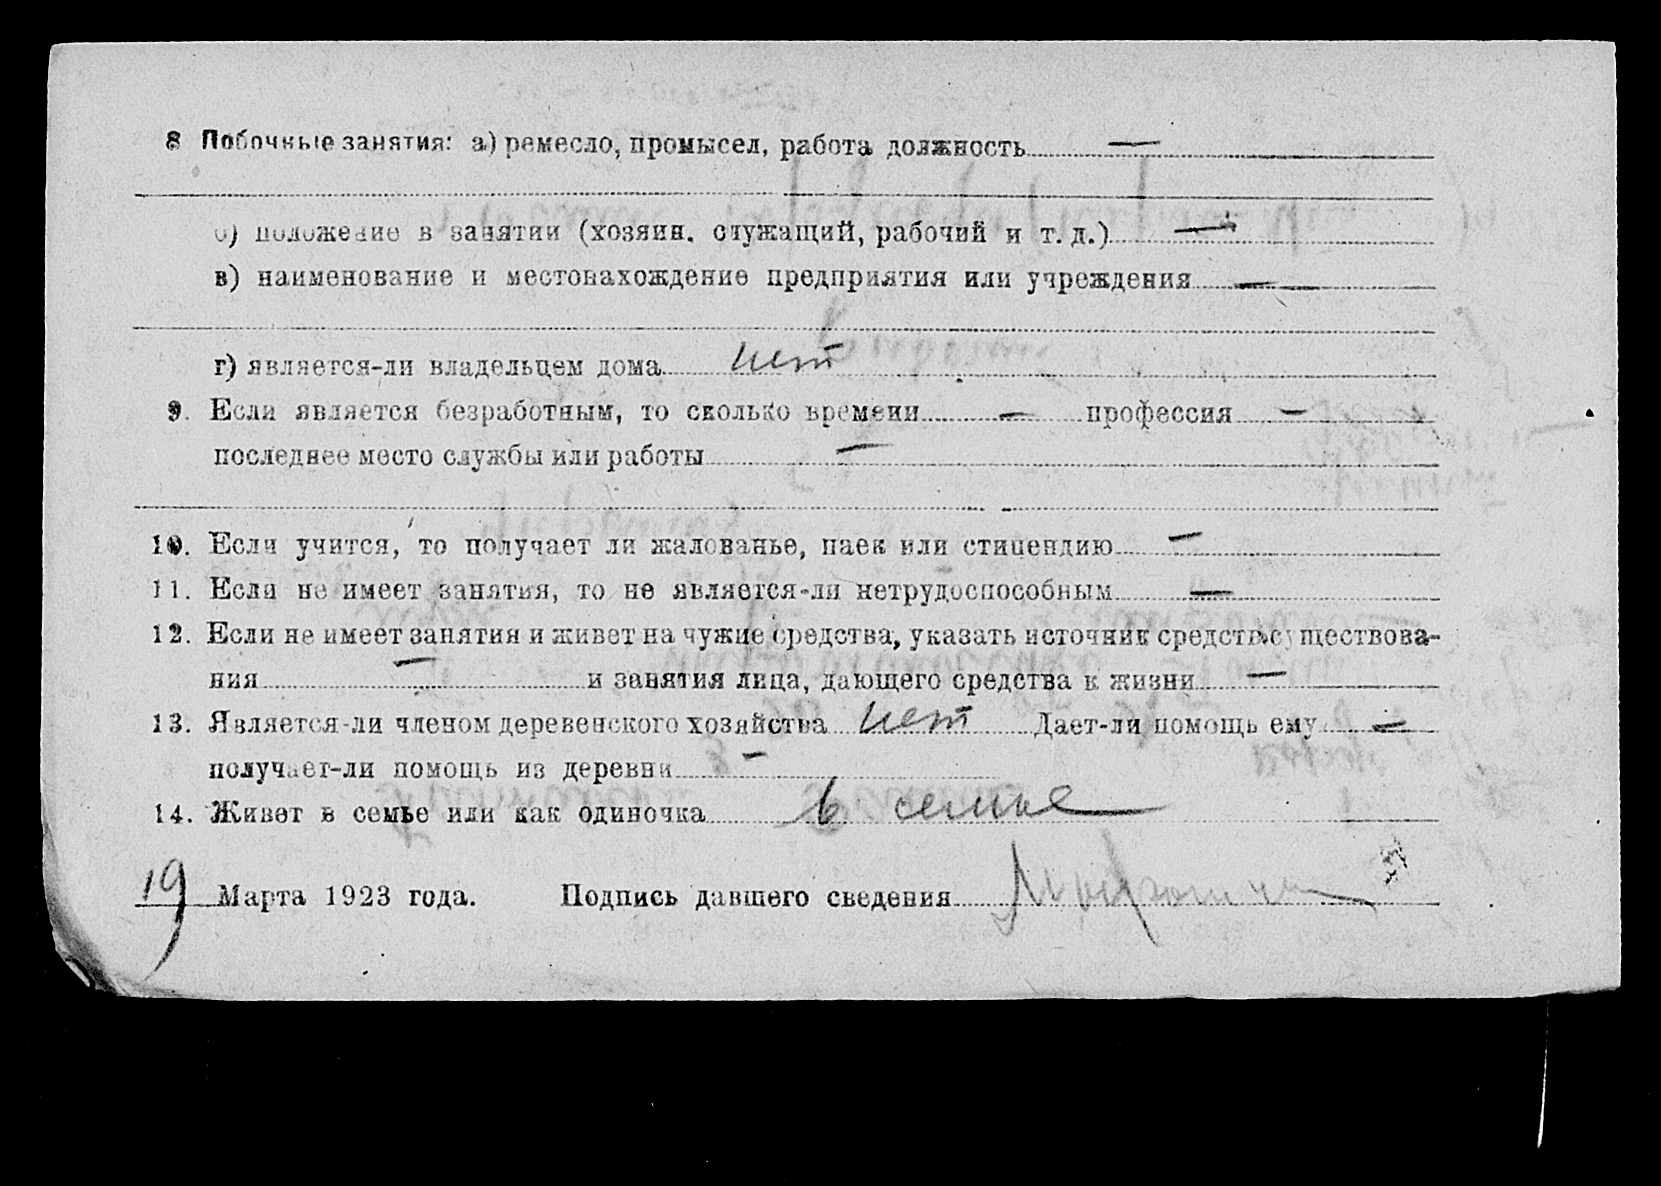 8 Побочные занятия: а) ремесло, промысел, работа должность —
б) положение в занятии (хозяин. служащий, рабочий и т. д.) —
в) наименование и местонахождение предприятия или учреждения — —
г) является-ли владельцем дома нет
9. Если является безработным, то сколько времени — профессия —
последнее место службы или работы —
10. Если учится, то получает ли жалованье, паек или стипендию —
11. Если не имеет занятия, то не является-ли нетрудоспособным —
12. Если не имеет занятия и живет на чужие средства, указать источник средств существова-
ния — и занятия лица, дающего средства к жизни —
13. Является-ли членом деревенского хозяйства нет Дает-ли помощь ему —
получает-ли помощь из деревни —
14. Живет в семье или как одиночка в семье
19 Марта 1923 года. Подпись давшего сведения